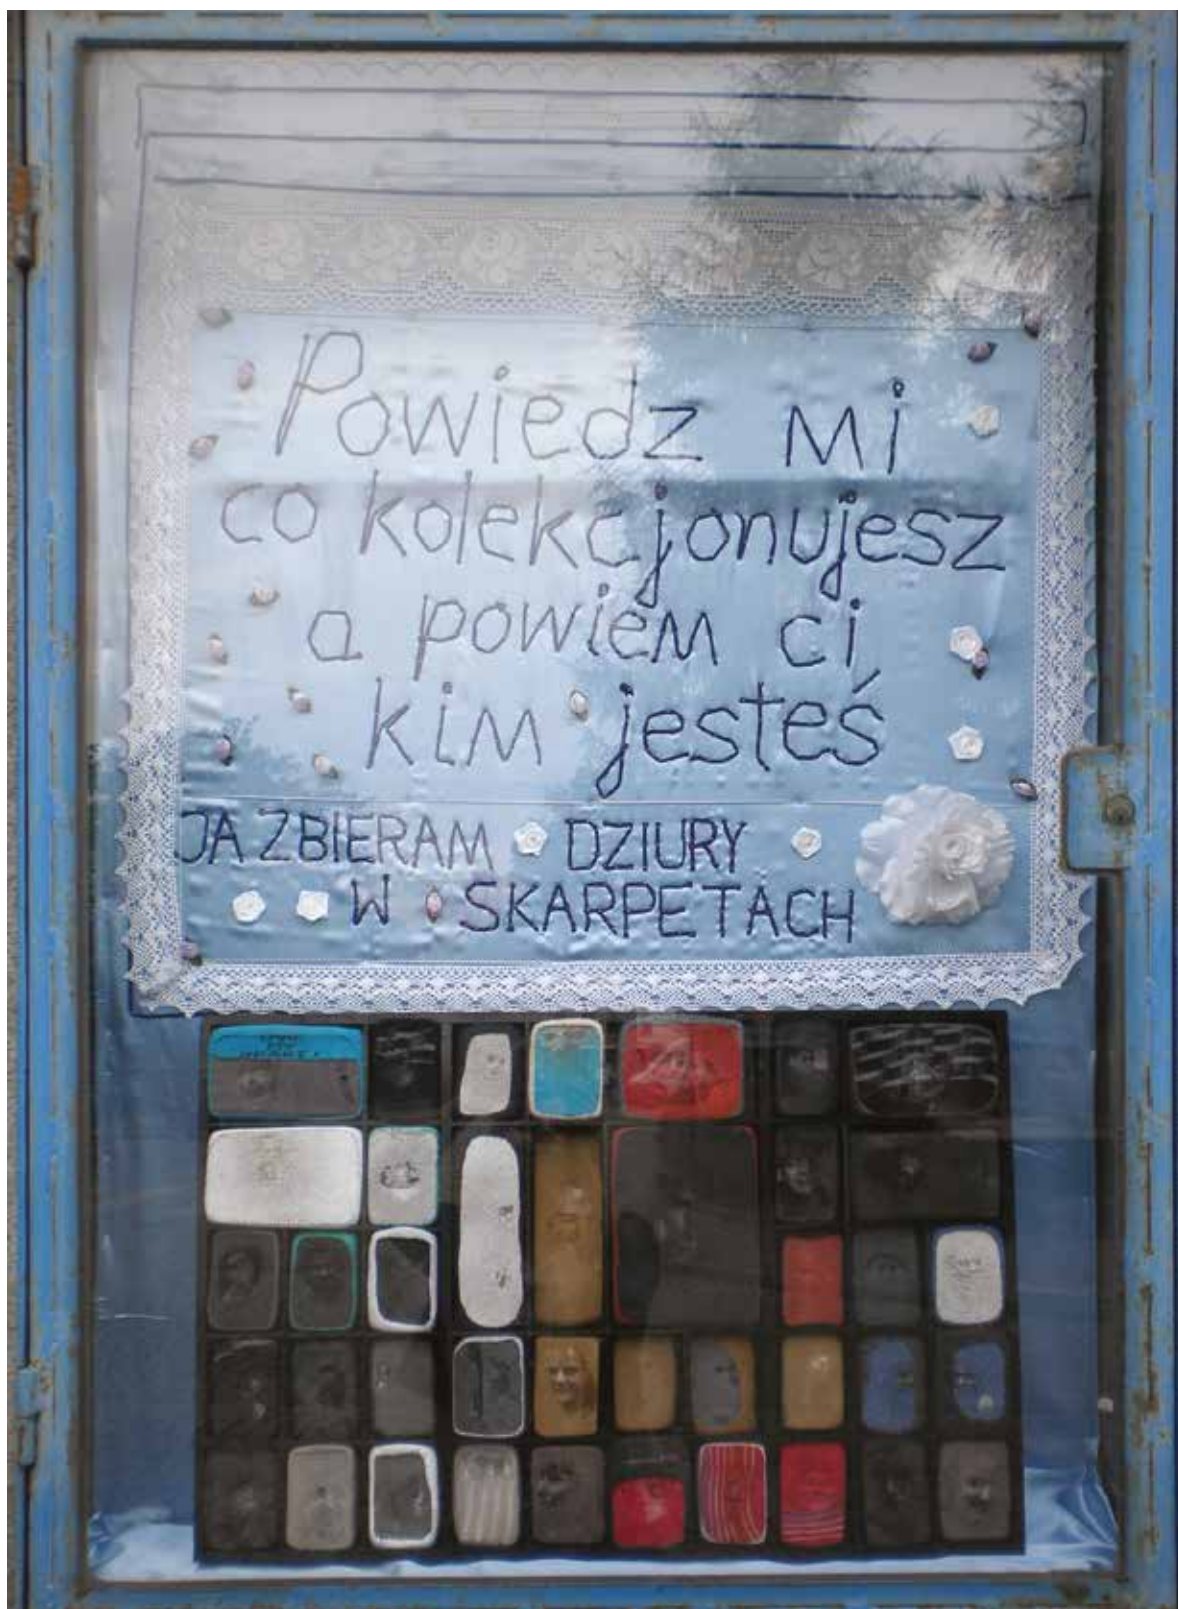 Powiedz mi
co kolekcjonujesz
a powiem ci
kim jesteś
JA ZBIERAM DZIURY
W SKARPETACH